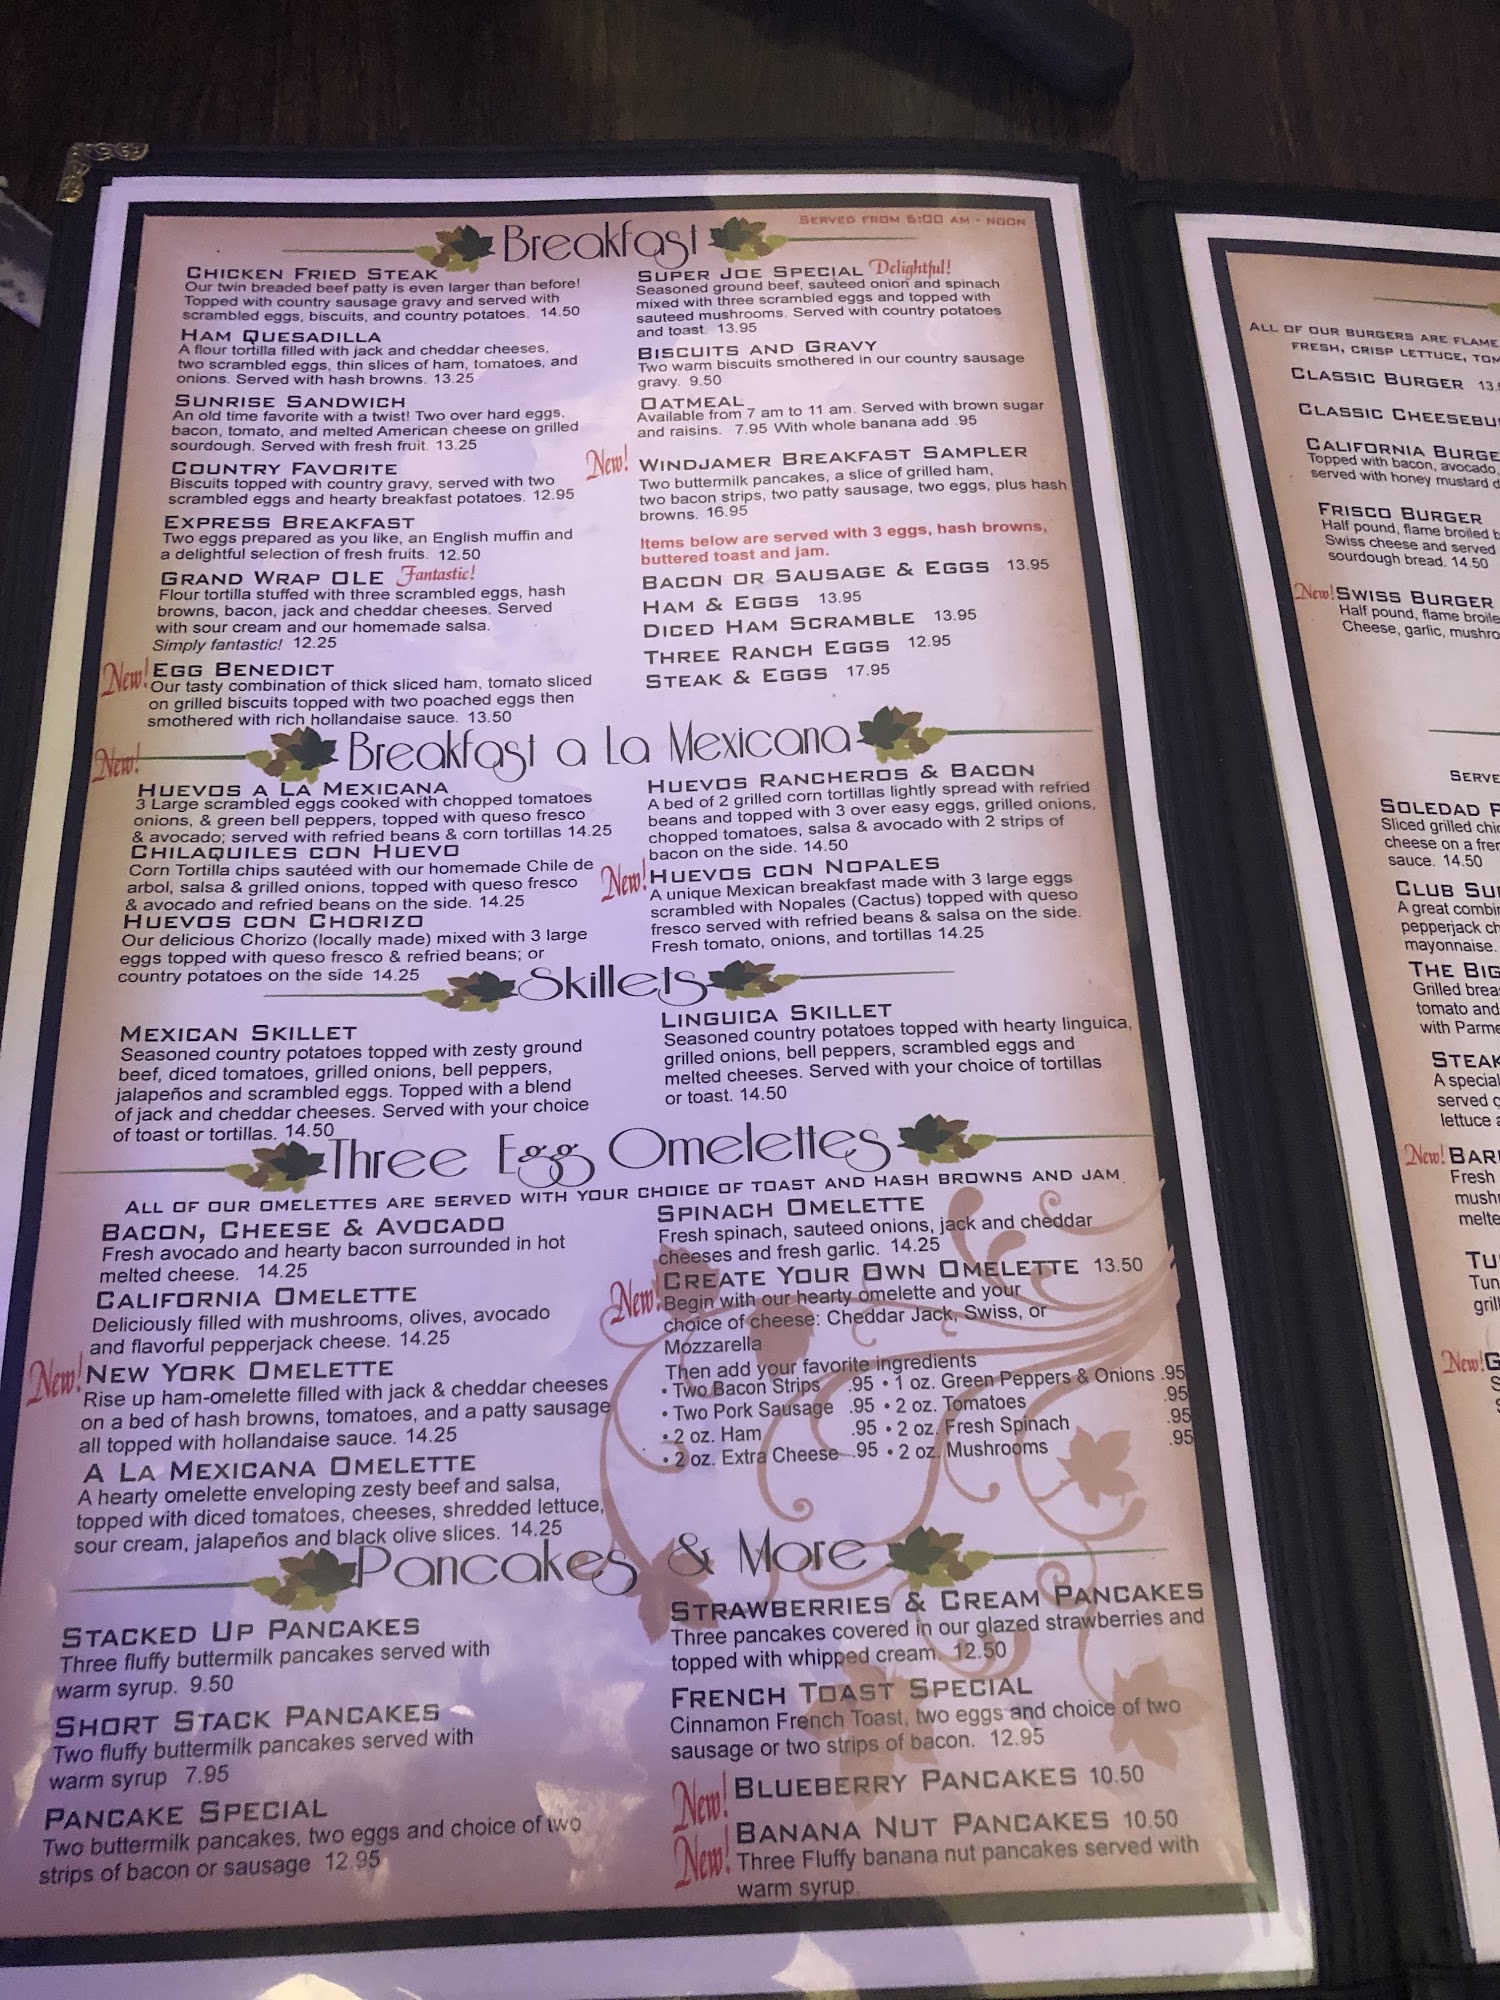 Breakfast
SERVED FROM 6:00 AM - NOON
CHICKEN FRIED STEAK
Our twin breaded beef patty is even larger than before!
Topped with country sausage gravy and served with
scrambled eggs, biscuits, and country potatoes. 14.50
HAM QUESADILLA
A flour tortilla filled with jack and cheddar cheeses,
two scrambled eggs, thin slices of ham, tomatoes, and
onions. Served with hash browns. 13.25
SUNRISE SANDWICH
An old time favorite with a twist! Two over hard eggs,
bacon, tomato, and melted American cheese on grilled
sourdough. Served with fresh fruit. 13.25
COUNTRY FAVORITE
Biscuits topped with country gravy, served with two
scrambled eggs and hearty breakfast potatoes. 12.95
EXPRESS BREAKFAST
Two eggs prepared as you like, an English muffin and
a delightful selection of fresh fruits. 12.50
GRAND WRAP OLE Fantastic!
Flour tortilla stuffed with three scrambled eggs, hash
browns, bacon, jack and cheddar cheeses. Served
with sour cream and our homemade salsa.
Simply fantastic! 12.25
New! EGG BENEDICT
Our tasty combination of thick sliced ham, tomato sliced
on grilled biscuits topped with two poached eggs then
smothered with rich hollandaise sauce. 13.50
SUPER JOE SPECIAL Delightful!
Seasoned ground beef, sauteed onion and spinach
mixed with three scrambled eggs and topped with
sauteed mushrooms. Served with country potatoes
and toast. 13.95
BISCUITS AND GRAVY
Two warm biscuits smothered in our country sausage
gravy. 9.50
OATMEAL
Available from 7 am to 11 am. Served with brown sugar
and raisins. 7.95 With whole banana add .95
New! WINDJAMER BREAKFAST SAMPLER
Two buttermilk pancakes, a slice of grilled ham,
two bacon strips, two patty sausage, two eggs, plus hash
browns. 16.95
Items below are served with 3 eggs, hash browns,
buttered toast and jam.
BACON OR SAUSAGE & EGGS 13.95
HAM & EGGS 13.95
DICED HAM SCRAMBLE 13.95
THREE RANCH EGGS 12.95
STEAK & EGGS 17.95
New! Breakfast a La Mexicana
HUEVOS A LA MEXICANA
3 Large scrambled eggs cooked with chopped tomatoes
onions, & green bell peppers, topped with queso fresco
& avocado; served with refried beans & corn tortillas 14.25
CHILAQUILES CON HUEVO
Corn Tortilla chips sautéed with our homemade Chile de
arbol, salsa & grilled onions, topped with queso fresco
& avocado and refried beans on the side. 14.25
HUEVOS CON CHORIZO
Our delicious Chorizo (locally made) mixed with 3 large
eggs topped with queso fresco & refried beans; or
country potatoes on the side 14.25
HUEVOS RANCHEROS & BACON
A bed of 2 grilled corn tortillas lightly spread with refried
beans and topped with 3 over easy eggs, grilled onions,
chopped tomatoes, salsa & avocado with 2 strips of
bacon on the side. 14.50
New! HUEVOS CON NOPALES
A unique Mexican breakfast made with 3 large eggs
scrambled with Nopales (Cactus) topped with queso
fresco served with refried beans & salsa on the side.
Fresh tomato, onions, and tortillas 14.25
Skillets
MEXICAN SKILLET
Seasoned country potatoes topped with zesty ground
beef, diced tomatoes, grilled onions, bell peppers,
jalapeños and scrambled eggs. Topped with a blend
of jack and cheddar cheeses. Served with your choice
of toast or tortillas. 14.50
LINGUICA SKILLET
Seasoned country potatoes topped with hearty linguica,
grilled onions, bell peppers, scrambled eggs and
melted cheeses. Served with your choice of tortillas
or toast. 14.50
Three Egg Omelettes
ALL OF OUR OMELETTES ARE SERVED WITH YOUR CHOICE OF TOAST AND HASH BROWNS AND JAM.
BACON, CHEESE & AVOCADO
Fresh avocado and hearty bacon surrounded in hot
melted cheese. 14.25
CALIFORNIA OMELETTE
Deliciously filled with mushrooms, olives, avocado
and flavorful pepperjack cheese. 14.25
New! NEW YORK OMELETTE
Rise up ham-omelette filled with jack & cheddar cheeses
on a bed of hash browns, tomatoes, and a patty sausage
all topped with hollandaise sauce. 14.25
A LA MEXICANA OMELETTE
A hearty omelette enveloping zesty beef and salsa,
topped with diced tomatoes, cheeses, shredded lettuce,
sour cream, jalapeños and black olive slices. 14.25
SPINACH OMELETTE
Fresh spinach, sauteed onions, jack and cheddar
cheeses and fresh garlic. 14.25
New! CREATE YOUR OWN OMELETTE 13.50
Begin with our hearty omelette and your
choice of cheese: Cheddar Jack, Swiss, or
Mozzarella
Then add your favorite ingredients
• Two Bacon Strips .95 • 1 oz. Green Peppers & Onions .95
• Two Pork Sausage .95 • 2 oz. Tomatoes .95
• 2 oz. Ham .95 • 2 oz. Fresh Spinach .95
• 2 oz. Extra Cheese .95 • 2 oz. Mushrooms .95
Pancakes & More
STACKED UP PANCAKES
Three fluffy buttermilk pancakes served with
warm syrup. 9.50
SHORT STACK PANCAKES
Two fluffy buttermilk pancakes served with
warm syrup 7.95
PANCAKE SPECIAL
Two buttermilk pancakes, two eggs and choice of two
strips of bacon or sausage 12.95
STRAWBERRIES & CREAM PANCAKES
Three pancakes covered in our glazed strawberries and
topped with whipped cream. 12.50
FRENCH TOAST SPECIAL
Cinnamon French Toast, two eggs and choice of two
sausage or two strips of bacon. 12.95
New! BLUEBERRY PANCAKES 10.50
New! BANANA NUT PANCAKES 10.50
Three Fluffy banana nut pancakes served with
warm syrup.
ALL OF OUR BURGERS ARE FLAME
FRESH, CRISP LETTUCE, TOM
CLASSIC BURGER 13.
CLASSIC CHEESEBU
CALIFORNIA BURGE
Topped with bacon, avocado,
served with honey mustard d
FRISCO BURGER
Half pound, flame broiled b
Swiss cheese and served
sourdough bread. 14.50
New! SWISS BURGER
Half pound, flame broile
Cheese, garlic, mushro
SERVE
SOLEDAD
Sliced grilled chic
cheese on a fren
sauce. 14.50
CLUB
A great combin
pepperjack ch
mayonnaise.
THE BIG
Grilled brea
tomato and
with Parme
STEAK
A special
served
lettuce
New! BAR
Fresh
mush
melte
TU
Tun
grill
New! G